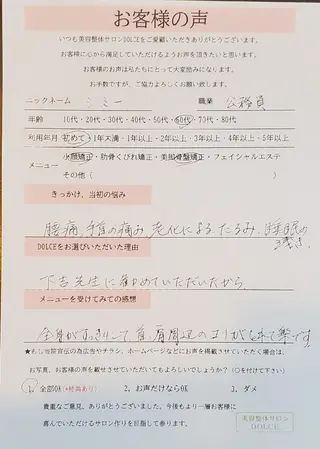 お客様の声
いつも美容整体サロンDOLCEをご愛顧いただきありがとうございます。
お客様に心から満足していただけるようお声を頂きたいと思います。
お客様のお声は私たちにとって大変励みになります。
お手数ですが、ご協力よろしくお願い致します。
ニックネーム ミミー 職業 公務員
年齢 10代・20代・30代・40代・50代・60代・70代・80代
利用年月 初めて・1年未満・1年以上・2年以上・3年以上・4年以上・5年以上
メニュー 小顔矯正・肋骨くびれ矯正・美脚骨盤矯正・フェイシャルエステ
その他（ ）
きっかけ、当初の悩み
腰痛、首の痛み 老化によるたるみ、睡眠の
浅さ
DOLCEをお選びいただいた理由
下吉先生に勧めていただいたから。
メニューを受けてみての感想
全身がすっきりして首、肩周辺のこりがなくて楽です。
★もし当院宣伝の為広告やチラシ、ホームページなどにお声を掲載させていただく場合は、
お写真、お客様の声を載せさせていただいてもよろしいでしょうか？（○を付けて下さい）
1、全部OK（*特典あり） 2、お声だけならOK 3、ダメ
貴重なご意見、ありがとうございました。今後もより一層お客様に
喜んでいただけるサロン作りを目指して参ります。
美容整体サロン
DOLCE